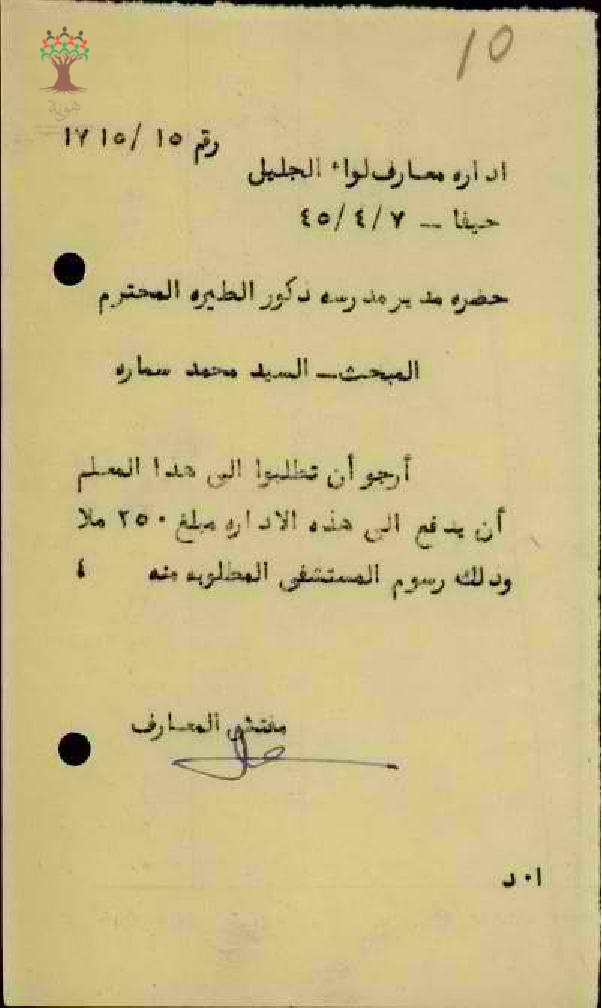 10
هوية
رقم ١٥/ ١٧١٥
اداره معارف لواء الجليل
حيفا ــ ٤٥/٤/٧
حضره مدير مدرسه ذكور الطيره المحترم
المبحث ــ السيد محمد سماره
أرجو أن تطلبوا الى هذا المعلم
أن يدفع الى هذه الاداره مبلغ ٢٥٠ ملا
وذلك رسوم المستشفى المطلوبه منه ٤
مفتش المعارف
ا٠د